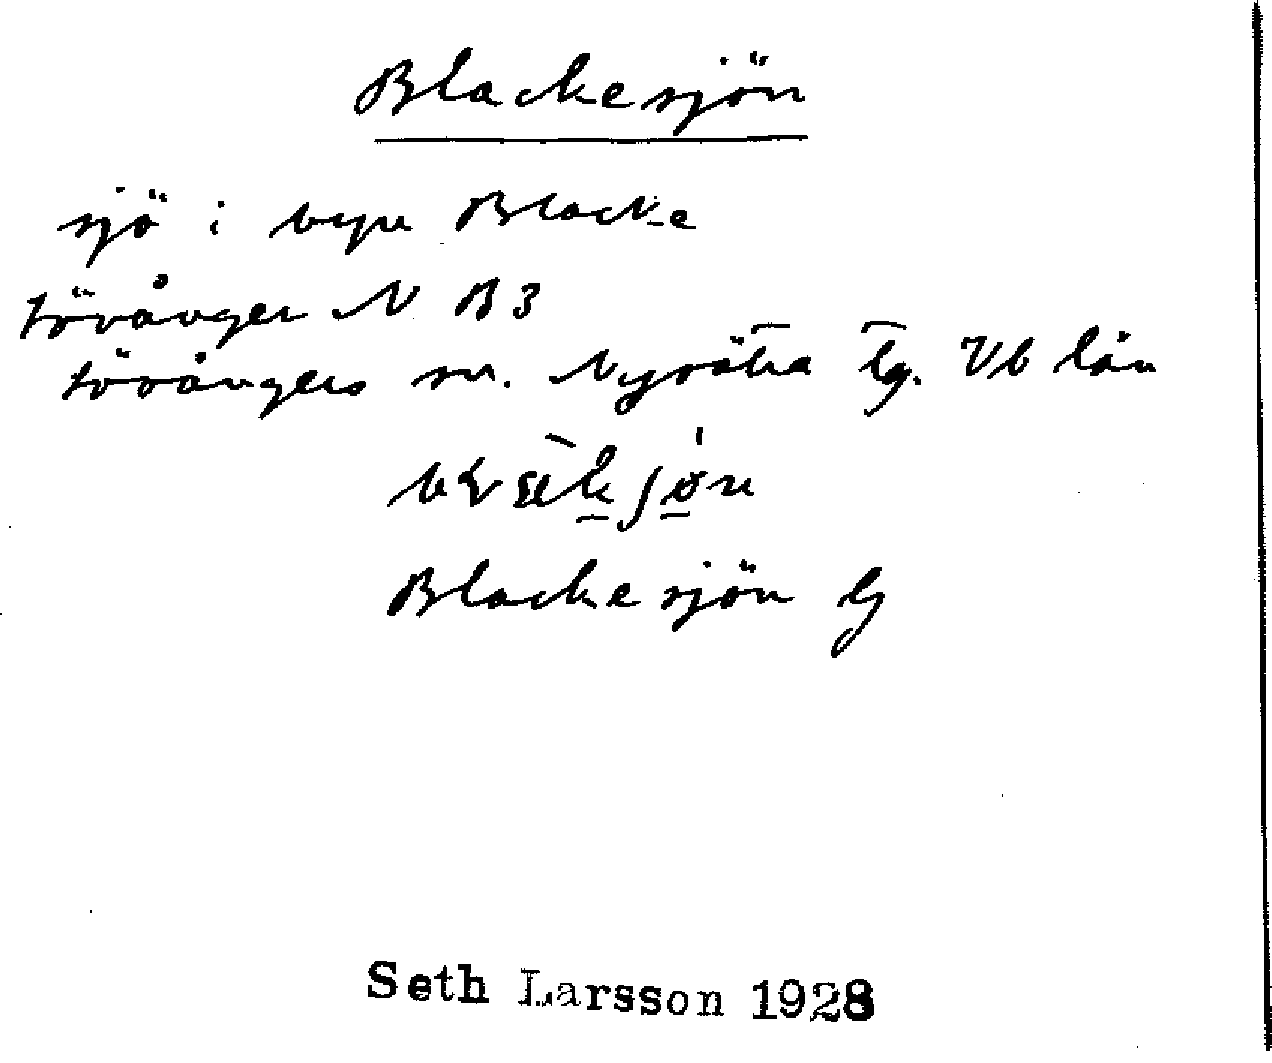 Blackesjön
sjö i byn Blacke
Lövånger N B3
Lövångers sn. Nysätra tg. Vb län
Blackesjön G
Seth Larsson 1928